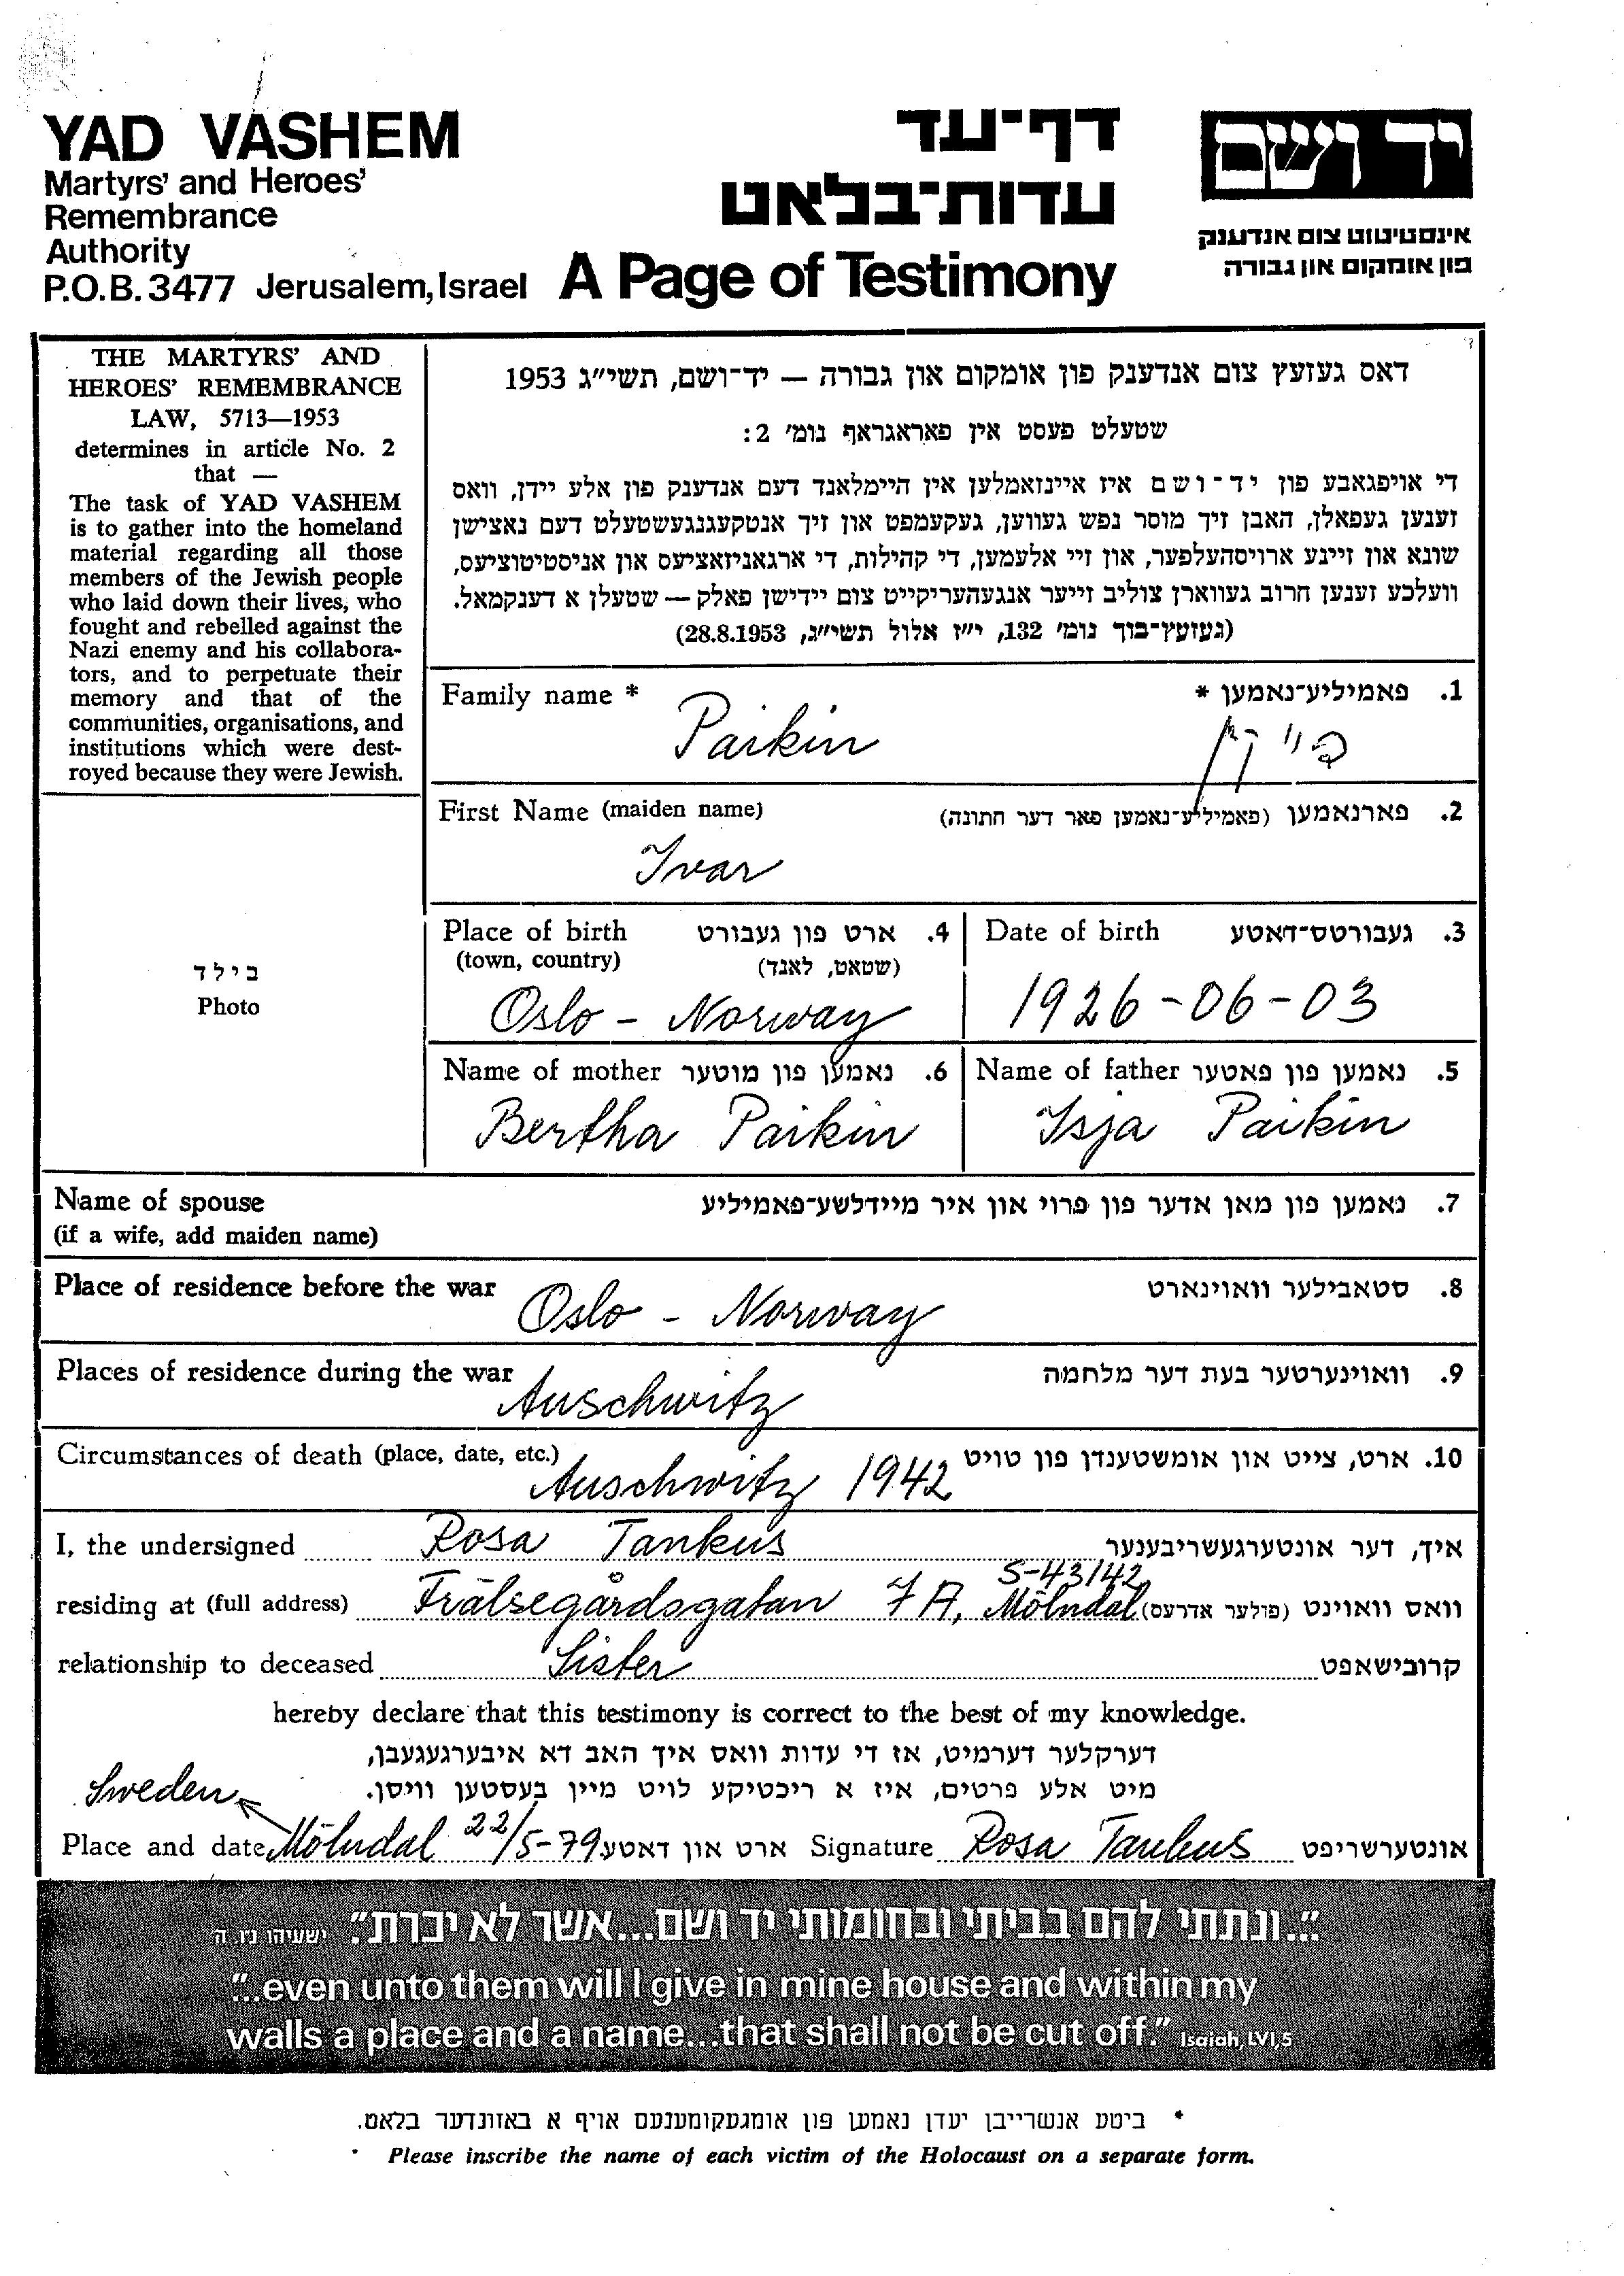 YAD VASHEM
Martyrs' and Heroes'
Remembrance
Authority
P.O.B. 3477 Jerusalem, Israel
דף־עד
עדות־בלאט
A Page of Testimony
יד ושם
אינסטיטוט צום אנדענק
פון אומקום און גבורה
THE MARTYRS' AND
HEROES' REMEMBRANCE
LAW, 5713—1953
determines in article No. 2
that —
The task of YAD VASHEM
is to gather into the homeland
material regarding all those
members of the Jewish people
who laid down their lives, who
fought and rebelled against the
Nazi enemy and his collabora-
tors, and to perpetuate their
memory and that of the
communities, organisations, and
institutions which were dest-
royed because they were Jewish.
דאס געזעץ צום אנדענק פון אומקום און גבורה — יד־ושם, תשי"ג 1953
שטעלט פעסט אין פאראגראף נומ' 2:
די אויפגאבע פון יד־ושם איז איינזאמלען אין היימלאנד דעם אנדענק פון אלע יידן, וואס
זענען געפאלן, האבן זיך מוסר נפש געווען, געקעמפט און זיך אנטקעגנגעשטעלט דעם נאצישן
שונא און זיינע ארויסהעלפער, און זיי אלעמען, די קהילות, די ארגאניזאציעס און אניסטיטוציעס,
וועלכע זענען חרוב געווארן צוליב זייער אנגעהעריקייט צום יידישן פאלק — שטעלן א דענקמאל.
(געזעץ־בוך נומ' 132, י"ז אלול תשי"ג, 28.8.1953)
Family name *
1. פאמיליע־נאמען *
Paikin
פייקין
First Name (maiden name)
2. פארנאמען (פאמיליע־נאמען פאר דער חתונה)
Ivar
Place of birth
(town, country)
4. ארט פון געבורט
(שטאט, לאנד)
Oslo - Norway
Date of birth
3. געבורטס־דאטע
1926-06-03
Name of mother
6. נאמען פון מוטער
Bertha Paikin
Name of father
5. נאמען פון פאטער
Isja Paikin
בילד
Photo
Name of spouse
(if a wife, add maiden name)
7. נאמען פון מאן אדער פון פרוי און איר מיידלשע־פאמיליע
Place of residence before the war
Oslo - Norway
8. סטאבילער וואוינארט
Places of residence during the war
Auschwitz
9. וואוינערטער בעת דער מלחמה
Circumstances of death (place, date, etc.)
Auschwitz 1942
10. ארט, צייט און אומשטענדן פון טויט
I, the undersigned Rosa Tankus איך, דער אונטערגעשריבענער
S-43142
residing at (full address) Frälsegårdsgatan 7A, Mölndal וואס וואוינט (פולער אדרעס)
relationship to deceased Sister קרובישאפט
hereby declare that this testimony is correct to the best of my knowledge.
דערקלער דערמיט, אז די עדות וואס איך האב דא איבערגעגעבן,
מיט אלע פרטים, איז א ריכטיקע לויט מיין בעסטען וויסן.
Sweden
Place and date Mölndal 22/5-79 ארט און דאטע Signature Rosa Tankus אונטערשריפט
"...ונתתי להם בביתי ובחומותי יד ושם...אשר לא יכרת." ישעיהו נ"ו, ה
"...even unto them will I give in mine house and within my
walls a place and a name...that shall not be cut off." Isaiah, LVI,5
* ביטע אנשרייבן יעדן נאמען פון אומגעקומענעם אויף א באזונדער בלאט.
* Please inscribe the name of each victim of the Holocaust on a separate form.